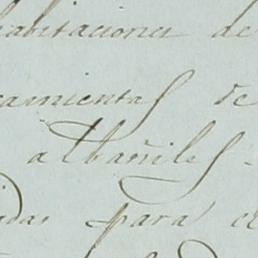 habitaciones de
camientas de
albañiles -
idas para el